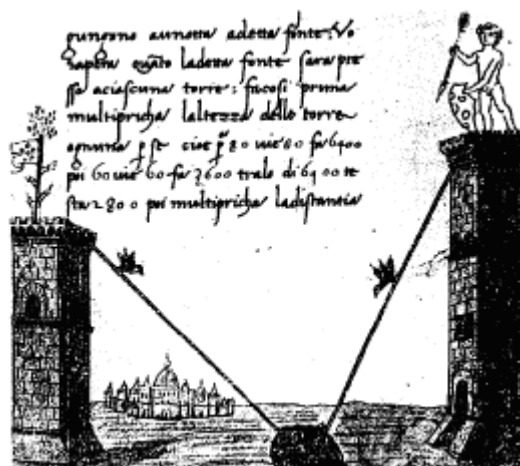 gungono aunotta adetta fonte: Vo
sapera quāto ladetta fonte sara pre
sso aciascuna torre: facosi prima
multipricha laltezza dello torre
ognuna p se cioe p 80 uie 80 fa 6400
poi 60 uie 60 fa 3600 tralo di 6400 re
sta 2800 poi multipricha ladistantia